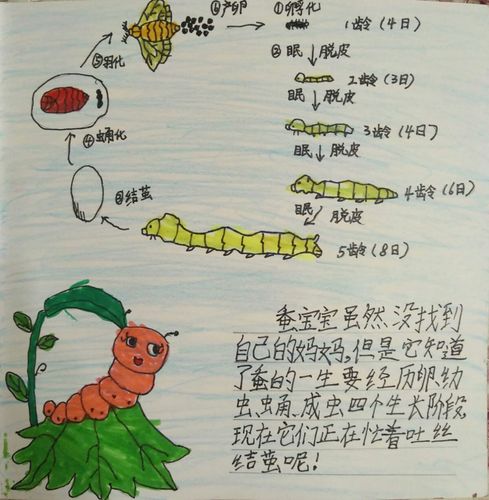 ⑥产卵
①孵化
1龄(4日)
②眠 脱皮
2龄(3日)
眠 脱皮
3龄(4日)
眠 脱皮
4龄(6日)
眠 脱皮
5龄(8日)
③结茧
④蛹化
⑤羽化
蚕宝宝虽然没找到
自己的妈妈,但是它知道
了蚕的一生要经历卵、幼
虫、蛹、成虫四个生长阶段,
现在它们正在忙着吐丝
结茧呢!